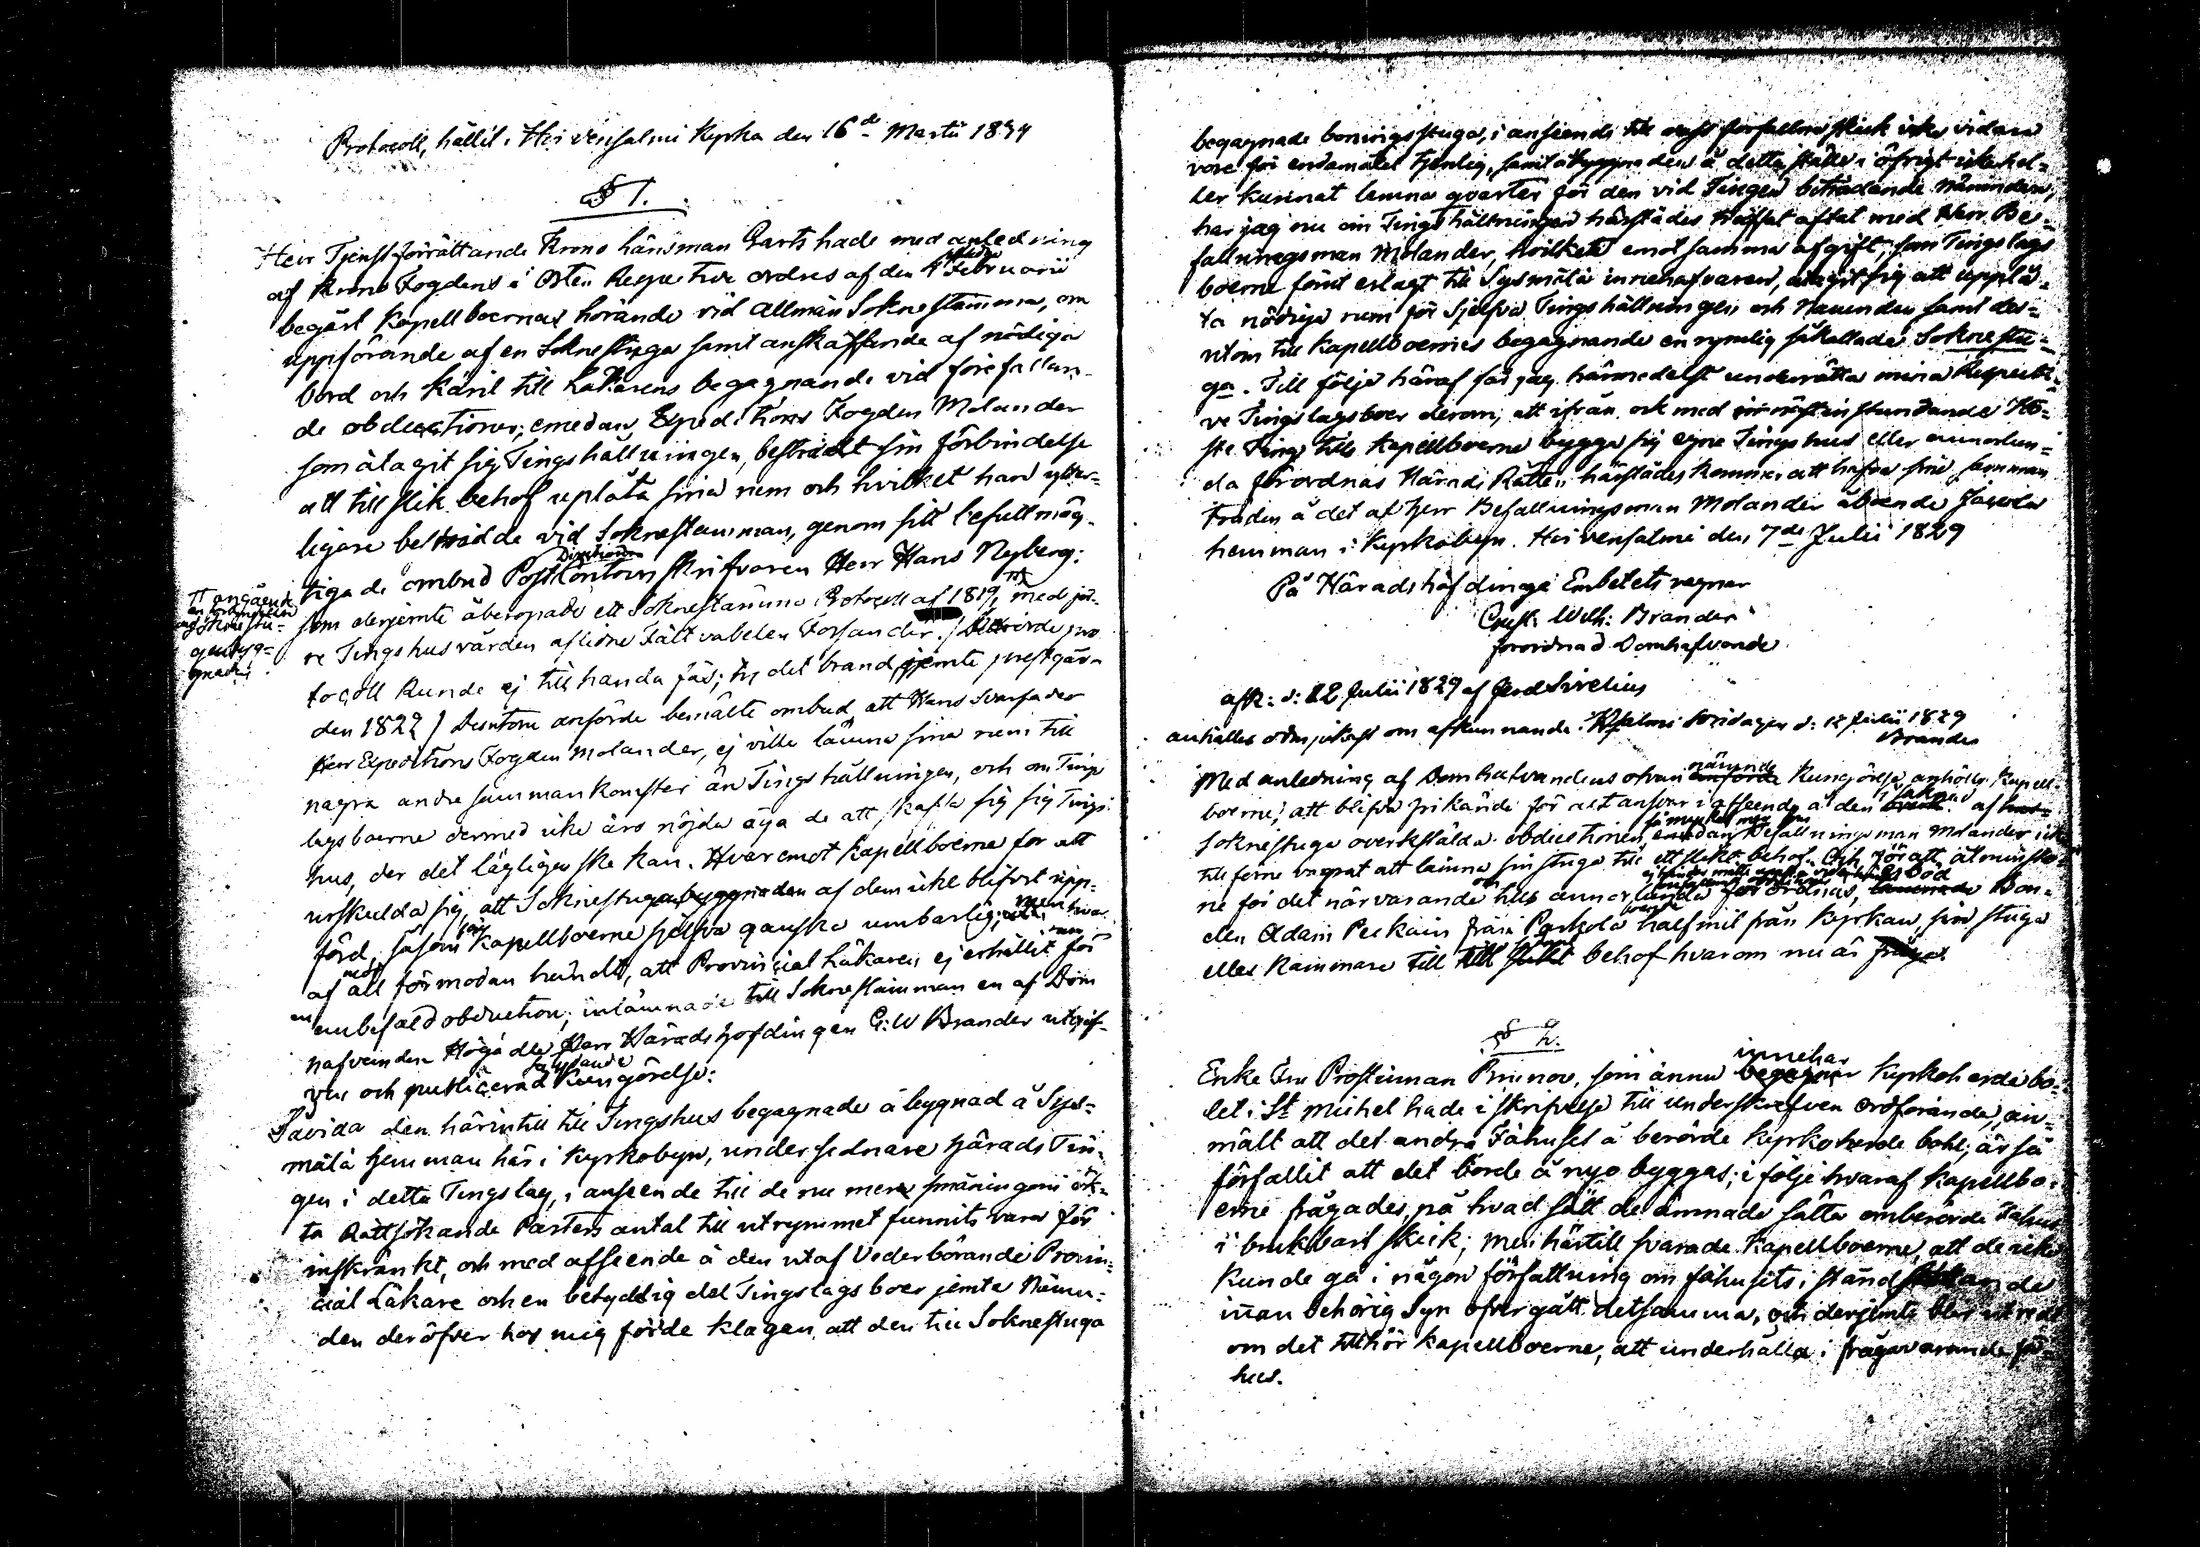 Protocoll, hållit i Hirvensalmi Kyrka den 16de Martii 1834
§ 1.
Herr Tjenstförrättande Krono Länsman Garts hade med anledning
af Krono Fogdens i Orten Respective ordres af den 4 sistl. Februarii
begärt Kapellboernas hörande vid allmän Soknestämma, om
uppförande af en Soknestuga samt anskaffande af nödiga
bord och Käril till Läkarens begagnande vid förefallan-
de obductioner; emedan Expeditions Fogden Molander
som åtagit sig Tingshållningen, bestridt sin förbindelse
att till slik behof uplåta sina rum och hvilket han ytter-
ligare bestridde vid Soknestämman, genom sitt befullmäg-
tigade ombud Post Contors skrifvaren Herr Hans Nyberg:
som derjemte åberopade ett Soknestämmo Protocoll af 1819, π med för-
π angående
en förbindelse
af Soknestu-
gu byg-
gnad
re Tingshusvärden aflidne Fältvabelen Forsander. / Berörde pro
tocoll kunde ej till handa fås; ty det brand jemte prestgår-
den 1822 / Dessutom anförde bemälte ombud att Hans Svärfader
Herr Expeditions Fogden Molander, ej ville lämna sina rum till
några andra sammankomster än Tingshållningen, och om Tings
lagsboerne dermed icke äro nöjda äga de att skaffa sig sig Tings-
hus, der det lägligen ske kan. Hvaremot Kapellboerne för att
urskulda sig, att Soknestugubyggnaden af dem icke blifvit upp-
förd, såsom för Kapellboerne sjelfva ganska umbärlig; men hva
af mot all förmodan händt, att Provincial Läkaren ej erhållit rum för
en anbefald obduction; inlämnade till Soknestämman en af Dom
hafvanden Högädle Herr Häradshöfdingen G: W Brander utgif-
ven och publicerad följande Kungörelse:
Såvida den härintill till Tingshus begagnade åbyggnad å Sys-
mälä hemman här i Kyrkobyn, under sednare Härads Tin-
gen i detta Tingslag, i anseende till de nu mera småningom ök-
ta Rättsökande Parters antal till utrymmet funnits vara för
inskränkt, och med afseende å den utaf Vederbörande Provin-
cial Läkare och en betydlig del Tingslags boer jemte Nämn-
den deröfver hos mig förde klagan, att den till Soknestuga
begagnade boningsstuga, i anseende till dess förfallna skick icke vidare
vore för endamålet tjenlig, samt åbyggnaden å detta ställe i öfrigt icke hel-
ler kunnat lemna qvarter för den vid Tingen biträdande Nämnden,
har jag nu om Tingshållningen härstädes träffat aftal med Herr Be-
fallningsman Molander, hvilken emot samma afgift, som Tingslags
boerne förut erlagt till Sysmälä innehafvaren, åtagit sig att upplå-
ta nödiga rum för Sjelfva Tingshållningen och Nämnden samt des-
utom till Kapellboernes begagnande en rymlig såkallade Soknestu-
ga. Till följe häraf får jag härmedelst underrätta mina Respecti-
ve Tingslagsboer derom, att ifrån och med nästinstundande Hö-
ste Ting tills Kapellboerne bygga sig egne Tingshus eller annorlun-
da förordnas Härads Rätten härstädes kommer att hafva sine samman-
träden å det af Herr Befallningsman Molander åboende Järvelä
hemman i Kyrkobyn. Hirvensalmi den 7de Julii 1829
På Häradshöfdinge Embetets vegnar
Gust. Wilh: Brander
förordnad Domhafvande
afk: d: 12 Julii 1829 af Jered Sirelius
anhålles ödmjukast om afkunnande i Hfsalmi Söndagen d: 12 Julii 1829
Brander
Med anledning af Domhafvandens ofvan nämnde anförde Kungörelse, anhöllo Kapell-
boerne, att blifva frikände för allt ansvar i afseende å den i saknad af
soknestuga overkställda obductionen, så mycket mer som emedan Befallningsman Molander icke
till ferne vägrat att lämna sin stuga till ett slikt behof. Och för att åtminsto-
ne för det närvarande tills annorlunda förordnas, lämnade Bon-
den Adam Pekkain från Pyrkölä half mil från Kyrkan, sin stuga
eller Kammare till till slikt behof hvarom nu är fråga
§ 2.
Enke Fru Prostinnan Brunou, som ännu innehar begagnar Kyrkoherde bo-
let i St Michel hade i skrifvelse till underskrefven Ordförande, an-
mält att det andra Fähuset å berörde Kyrkoherde bohl, är så
förfallit att det borde å nyo byggas; i följe hvaraf Kapellbo-
erne frågades, på hvad sätt de ämnade sätta omberörde Fähus
i brukbart skick; men härtill svarade Kapellboerne, att de icke
kunde gå i någon författning om fähusets i stånd sättande
innan behörig Syn öfvergått detsamma, och derjemte blir utredt
om det tillhör Kapellboerne, att underhålla i frågavarande fä-
hus.